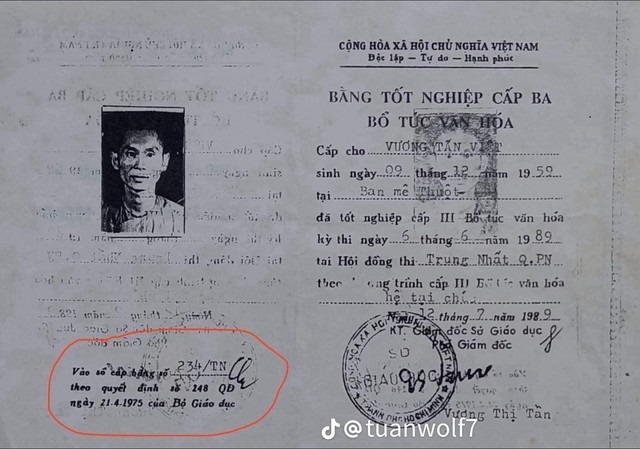 CỘNG HÒA XÃ HỘI CHỦ NGHĨA VIỆT NAM
Độc lập — Tự do — Hạnh phúc
BẰNG TỐT NGHIỆP CẤP BA
BỔ TÚC VĂN HÓA
Cấp cho VƯƠNG TẤN VIỆT
sinh ngày 09 tháng 12 năm 1959
tại Ban mê Thuột
đã tốt nghiệp cấp III Bổ túc văn hóa
kỳ thi ngày 6 tháng 6 năm 1989
tại Hội đồng thi Trung Nhất Q.PN
theo chương trình cấp III Bổ túc văn hóa
hệ tại
12 tháng 7 năm 1989
KT. Giám đốc Sở Giáo dục
Phó Giám đốc
SỞ
GIÁO DỤC
Vương Thị Tần
Vào sổ cấp bằng số 234/TN
theo quyết định số 248 QĐ
ngày 21.4.1975 của Bộ Giáo dục
@tuanwolf7